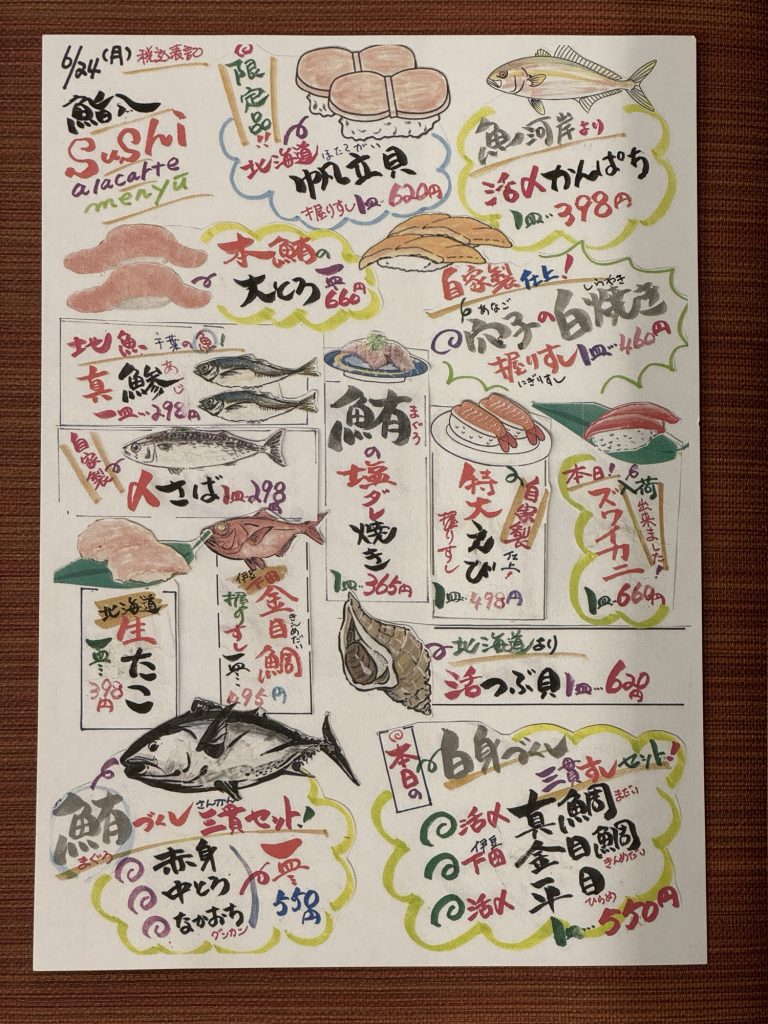 6/24(月) 税込表記
鮨八
Sushi
alacarte
menyū
限定品!!
北海道 帆立貝
ほたてがい
握りすし1皿…620円
魚河岸より
活〆かんぱち
1皿…398円
本鮪の
大とろ 一皿660円
自家製仕上!
穴子の白焼き
あなご しらやき
握りすし1皿…460円
にぎりすし
地魚、千葉の魚!
真鯵
あじ
一皿…298円
自家製
〆さば1皿…298
鮪の塩ダレ焼き
まぐろ
1皿…365円
自家製仕上!
特大えび
握りすし
1皿…498円
本日!入荷出来ました!
ズワイカニ
1皿…660円
北海道
生たこ
一皿…398円
伊豆
金目鯛
きんめだい
握りすし一皿…495円
北海道より
活つぶ貝1皿…620円
鮪づくし三貫セット!
まぐろ さんかん
赤身
中とろ
なかおち
グンカン
一皿…550円
本日の
白身づくし
三貫すしセット!
活〆 真鯛 まだい
伊豆下田 金目鯛 きんめだい
活〆 平目 ひらめ
1皿…550円